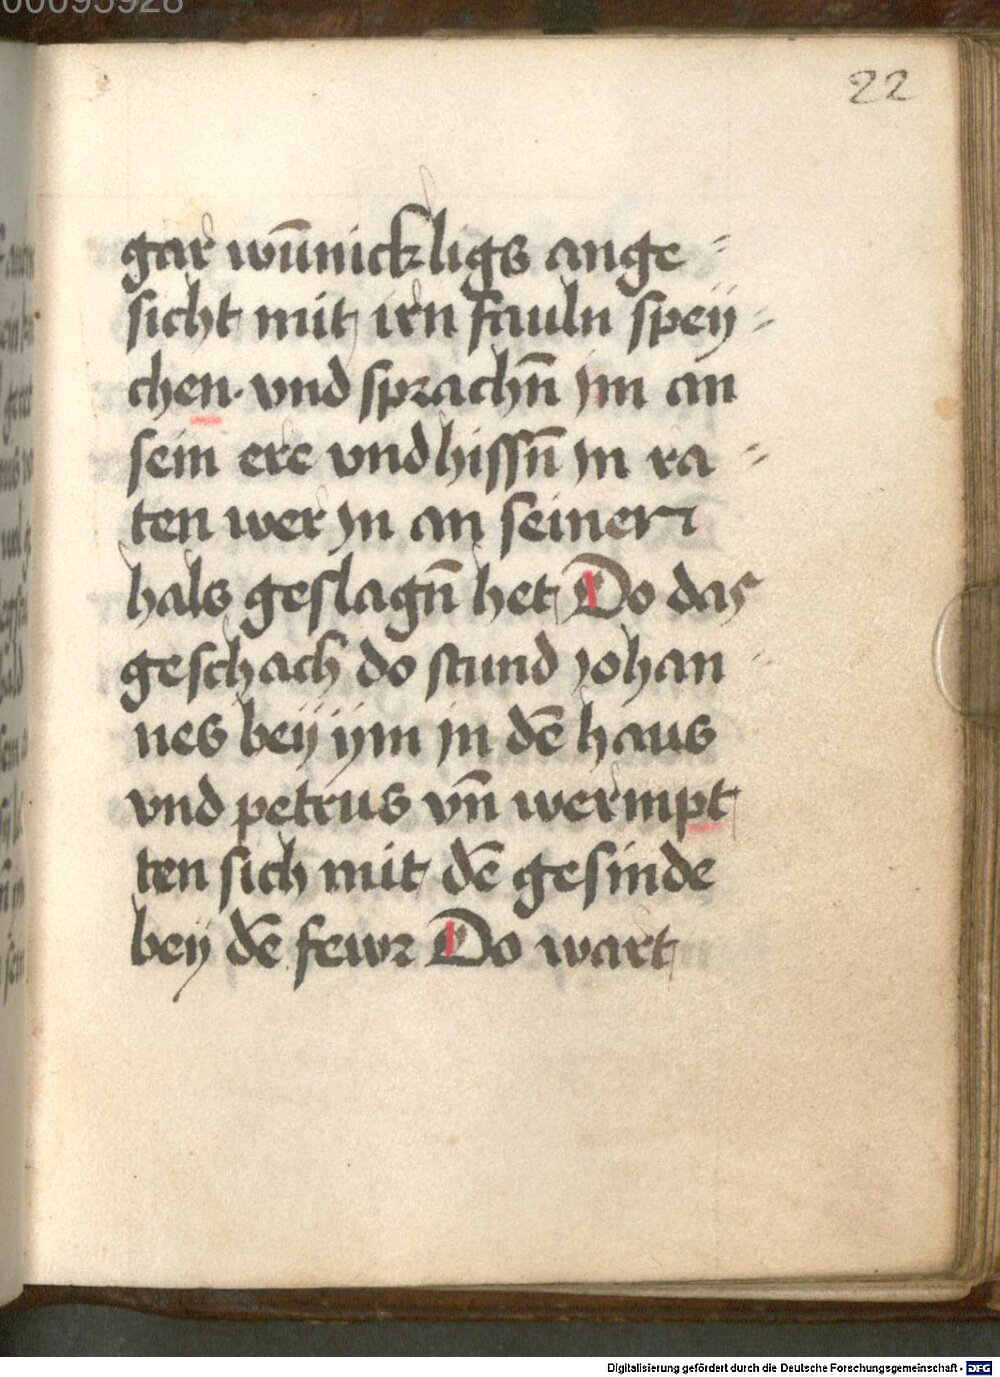 00095928
22
gar wūnickligs ange=
sicht mit irn fauln speÿ=
chen· vnd sprachn̄ jm an
sein ere vnd hissn̄ in ra=
ten wer jn an seinen
hals geslagn̄ het Do das
geschach do stund johan=
nes beÿ ÿm jn dē haus
vnd petrus vn̄ wermpt
ten sich mit dē gesinde
beÿ dē fewr Do wart
Digitalisierung gefördert durch die Deutsche Forschungsgemeinschaft - DFG